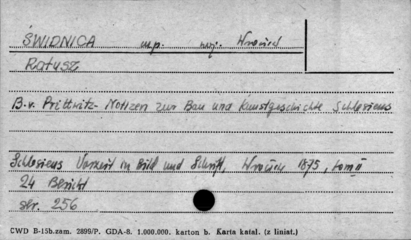 ŚWIDNICA mp. woj. Wrocław
Ratusz
B.v. Prittwitz- Notizen zur Bau und Kunstgeschichte Schlesiens
Schlesiens Vorzeit in Bild und Schrift, Wrocław 1875,
24 Bericht
str. 256
CWD B-15b.zam. 2899/P. GDA-8. 1.000.000. karton b. Karta katal. (z liniat.)